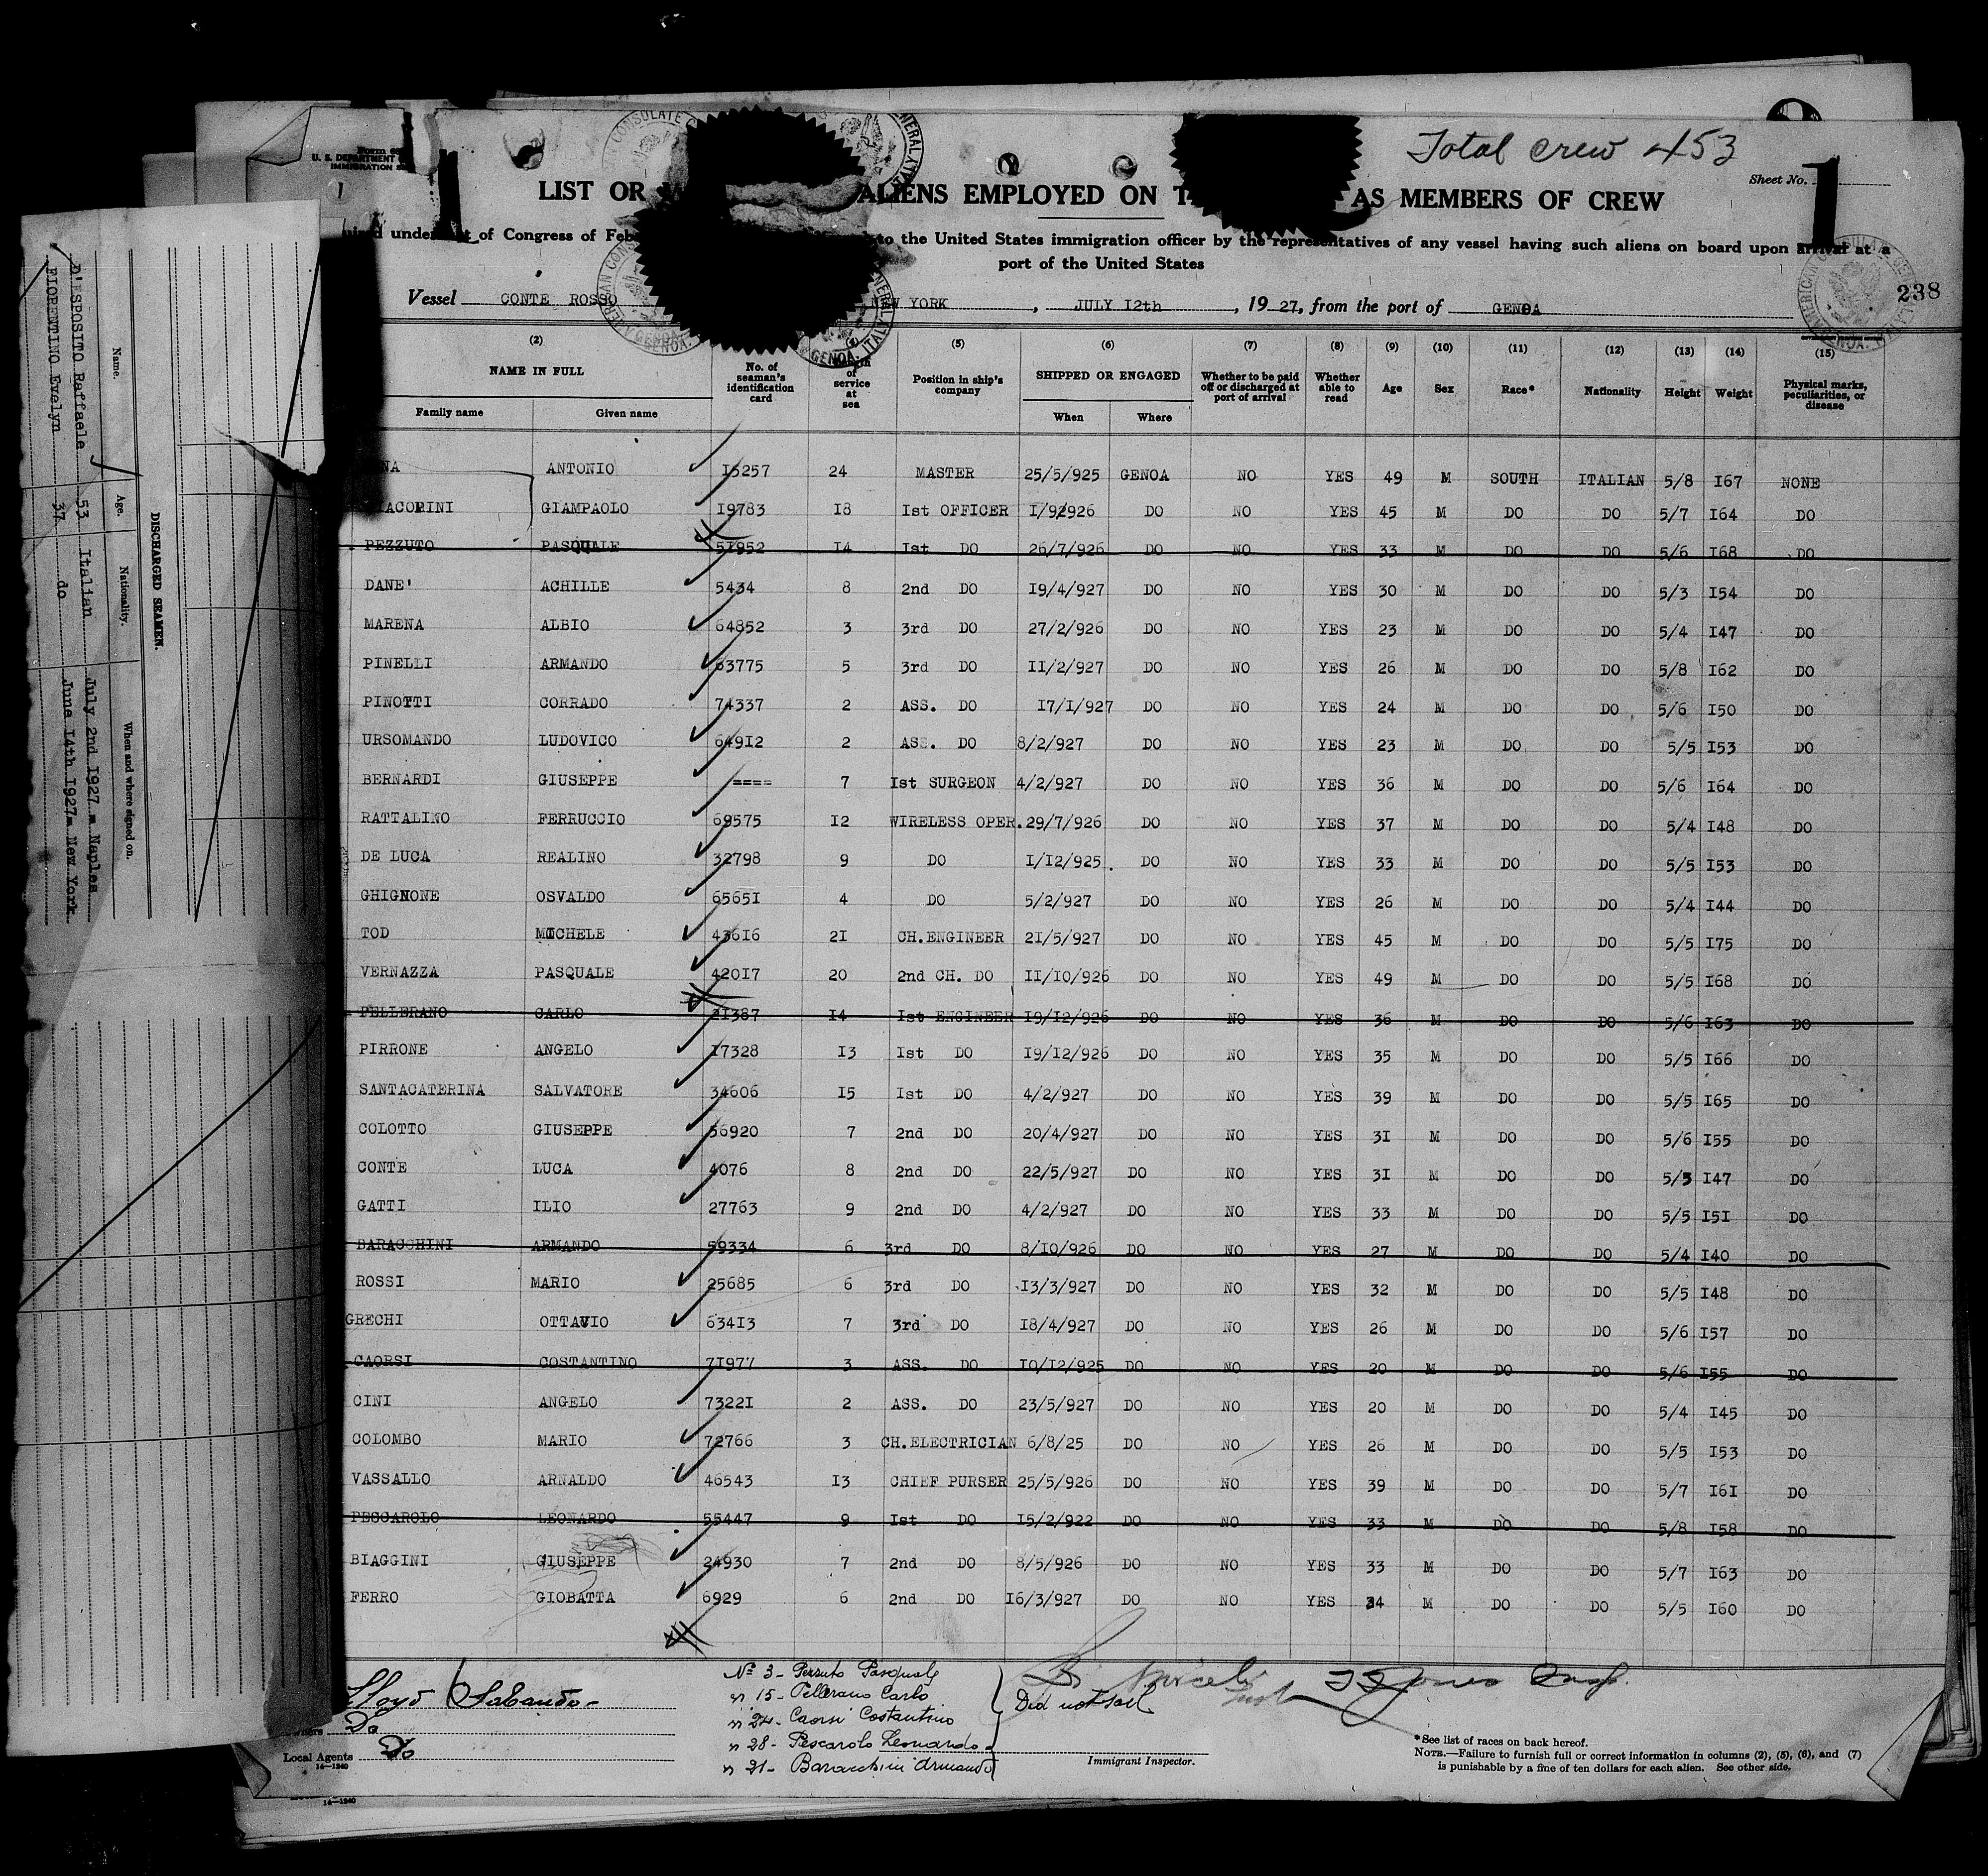 Total crew 453
Form 68
U. S. DEPARTMENT
IMMIGRATION
Sheet No. 1
LIST OR ALIENS EMPLOYED ON AS MEMBERS OF CREW
under of Congress of to the United States immigration officer by the representatives of any vessel having such aliens on board upon arrival at a
port of the United States
238
Vessel CONTE ROSSO NEW YORK, JULY I2th, 19 27, from the port of GENOA
(2) (5) (6) (7) (8) (9) (10) (11) (12) (13) (14) (15)
NAME IN FULL No. of seaman's identification card of service at sea Position in ship's company SHIPPED OR ENGAGED Whether to be paid off or discharged at port of arrival Whether able to read Age Sex Race* Nationality Height Weight Physical marks, peculiarities, or disease
Family name Given name When Where
NA ANTONIO I5257 24 MASTER 25/5/925 GENOA NO YES 49 M SOUTH ITALIAN 5/8 I67 NONE
GIAMPAOLO I9783 I8 Ist OFFICER I/9/926 DO NO YES 45 M DO DO 5/7 I64 DO
PEZZUTO PASQUALE 5I952 I4 Ist DO 26/7/926 DO NO YES 33 M DO DO 5/6 I68 DO
DANE' ACHILLE 5434 8 2nd DO I9/4/927 DO NO YES 30 M DO DO 5/3 I54 DO
MARENA ALBIO 64852 3 3rd DO 27/2/926 DO NO YES 23 M DO DO 5/4 I47 DO
PINELLI ARMANDO 63775 5 3rd DO II/2/927 DO NO YES 26 M DO DO 5/8 I62 DO
PINOTTI CORRADO 74337 2 ASS. DO I7/I/927 DO NO YES 24 M DO DO 5/6 I50 DO
URSOMANDO LUDOVICO 649I2 2 ASS. DO 8/2/927 DO NO YES 23 M DO DO 5/5 I53 DO
BERNARDI GIUSEPPE ==== 7 Ist SURGEON 4/2/927 DO NO YES 36 M DO DO 5/6 I64 DO
RATTALINO FERRUCCIO 69575 I2 WIRELESS OPER. 29/7/926 DO NO YES 37 M DO DO 5/4 I48 DO
DE LUCA REALINO 32798 9 DO I/I2/925. DO NO YES 33 M DO DO 5/5 I53 DO
GHIGNONE OSVALDO 6565I 4 DO 5/2/927 DO NO YES 26 M DO DO 5/4 I44 DO
TOD MICHELE 436I6 2I CH.ENGINEER 2I/5/927 DO NO YES 45 M DO DO 5/5 I75 DO
VERNAZZA PASQUALE 420I7 20 2nd CH. DO II/I0/926 DO NO YES 49 M DO DO 5/5 I68 DO
PELLERANO CARLO 2I387 I4 Ist ENGINEER I9/I2/926 DO NO YES 36 M DO DO 5/6 I63 DO
PIRRONE ANGELO I7328 I3 Ist DO I9/I2/926 DO NO YES 35 M DO DO 5/5 I66 DO
SANTACATERINA SALVATORE 34606 I5 Ist DO 4/2/927 DO NO YES 39 M DO DO 5/5 I65 DO
COLOTTO GIUSEPPE 56920 7 2nd DO 20/4/927 DO NO YES 3I M DO DO 5/6 I55 DO
CONTE LUCA 4076 8 2nd DO 22/5/927 DO NO YES 3I M DO DO 5/3 I47 DO
GATTI ILIO 27763 9 2nd DO 4/2/927 DO NO YES 33 M DO DO 5/5 I5I DO
BARACCHINI ARMANDO 59334 6 3rd DO 8/I0/926 DO NO YES 27 M DO DO 5/4 I40 DO
ROSSI MARIO 25685 6 3rd DO I3/3/927 DO NO YES 32 M DO DO 5/5 I48 DO
GRECHI OTTAVIO 634I3 7 3rd DO I8/4/927 DO NO YES 26 M DO DO 5/6 I57 DO
CAORSI COSTANTINO 7I977 3 ASS. DO I0/I2/925 DO NO YES 20 M DO DO 5/6 I55 DO
CINI ANGELO 7322I 2 ASS. DO 23/5/927 DO NO YES 20 M DO DO 5/4 I45 DO
COLOMBO MARIO 72766 3 CH.ELECTRICIAN 6/8/25 DO NO YES 26 M DO DO 5/5 I53 DO
VASSALLO ARNALDO 46543 I3 CHIEF PURSER 25/5/926 DO NO YES 39 M DO DO 5/7 I6I DO
PESCAROLO LEONARDO 55447 9 Ist DO I5/2/922 DO NO YES 33 M DO DO 5/8 I58 DO
BIAGGINI GIUSEPPE 24930 7 2nd DO 8/5/926 DO NO YES 33 M DO DO 5/7 I63 DO
FERRO GIOBATTA 6929 6 2nd DO I6/3/927 DO NO YES 34 M DO DO 5/5 I60 DO
Lloyd Sabaudo
Do
Local Agents Do
16—1240
Nº 3 - Pezzuto Pasquale
n 15 - Pellerano Carlo
n 24 - Caorsi Costantino
n 28 - Pescarolo Leonardo
n 21 - Baracchini Armando
Did not sail
Immigrant Inspector.
*See list of races on back hereof.
NOTE.—Failure to furnish full or correct information in columns (2), (5), (6), and (7)
is punishable by a fine of ten dollars for each alien. See other side.
16—1240
DISCHARGED SEAMEN.
Name. Age. Nationality. When and where signed on.
D'ESPOSITO Raffaele 53 Italian July 2nd I927 = Naples
FIORENTINO Evelyn 37 do June I4th I927= New York